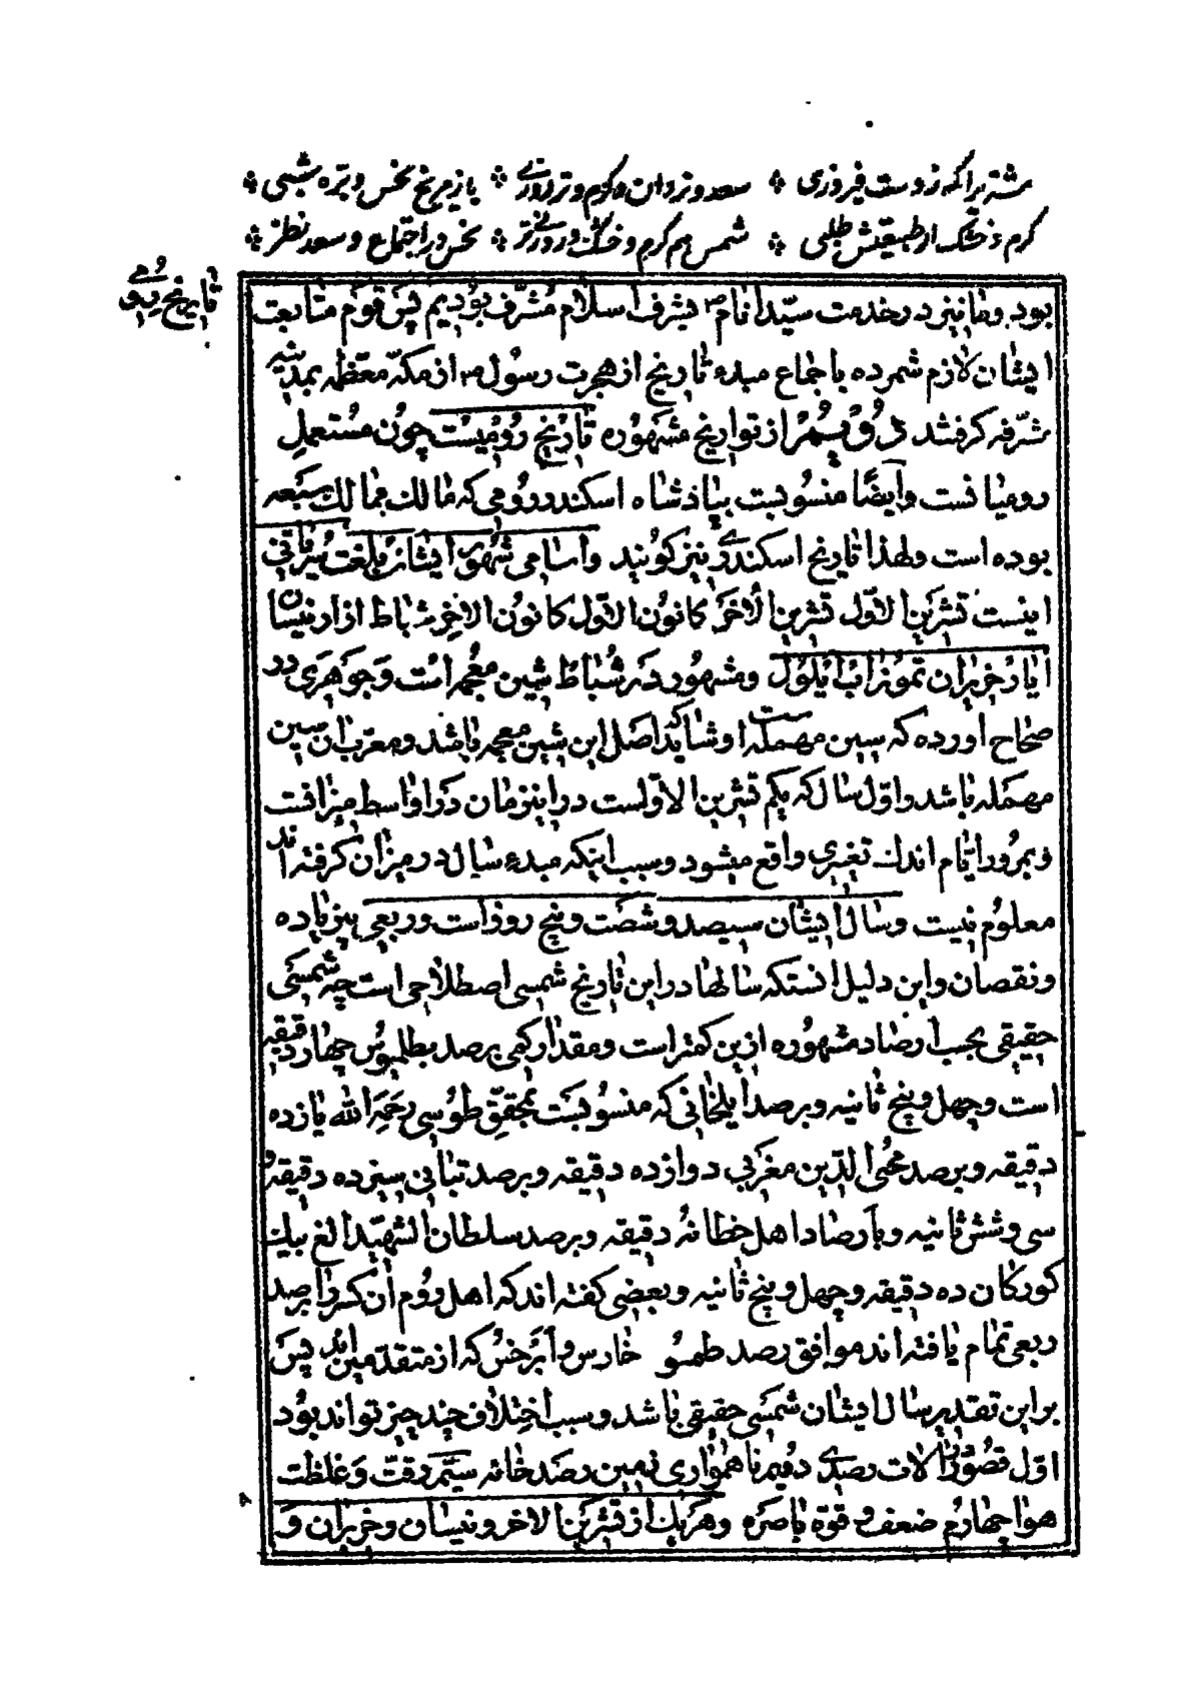 مشتریرا که زوست فیروزی ❖ سعد و نردان و کرم و تر روزی ❖ باز مریخ نحس و تره شبی ❖
کرم و خشک از طبیعتش طلبی ❖ شمس هم کرم و خشک و روزی تر ❖ نحس در اجتماع و سعد نظر ❖
تاریخ رومی
بود و ما نیز در خدمت سیّد انام ص بشرف اسلام مشرّف بودیم پس قوم متابعت
ایشان لازم شمرده باجماع مبدء تاریخ از هجرت رسول ص از مکّه معظّمه بمدینه
مشرّفه کرفتند دوّیمر از تواریخ مشهوره تاریخ رومیست چون مستعمل
رومیانست و ایضًا منسوبست بپادشاه اسکندر رومی که مالک ممالک سبعه
بوده است و لهذا تاریخ اسکندری نیز کویند و اسامی شهور ایشان بلغت سریانی
اینست تشرین الاوّل تشرین الاخر کانون الاوّل کانون الاخر شباط اذار نیسان
ایار حزیران تموز اب ایلول و مشهور در شباط شین معجمه است و جوهری در
صحاح اورده که بسین مهمله است و شاید که اصل این شین معجمه باشد و معرّب ان سین
مهمله باشد و اوّل سال که یکم تشرین الاوّلست در اینزمان در اواسط میزانست
و بمرور ایّام اندک تغییری واقع میشود و سبب اینکه مبدء سال در میزان کرفته اند
معلوم نیست و سال ایشان سیصد و شصت و پنج روز است و ربعی بیزیاده
و نقصان و این دلیل انستکه سالها در این تاریخ شمسی اصطلاحی است چه شمسی
حقیقی بحسب ارصاد مشهوره ازین کمتر است و مقدار کمی برصد بطلمیوس چهار دقیقه
است و چهل و پنج ثانیه و برصد ایلخانی که منسوبست بمحقّق طوسی رحمه الله یازده
دقیقه و برصد محیی الدّین مغربی دوازده دقیقه و برصد تبانی سیزده دقیقه و
سی و شش ثانیه و بارصاد اهل خطا نه دقیقه و برصد سلطان الشهید الغ بیک
کورکان ده دقیقه و چهل و پنج ثانیه و بعضی کفته اند که اهل روم ان کسر را برصد
ربعی تمام یافته اند موافق رصد طمو خارس و ابرخس که از متقدّمین اند پس
براین تقدیر سال ایشان شمسی حقیقی باشد و سبب اختلاف چند چیز تواند بود
اوّل قصور الات رصدی دویم ناهمواری زمین رصد خانه سیّم رقّت و غلظت
هوا چهارم ضعف قوّة باصره و هریک از تشرین الاخر و نیسان و حزیران و